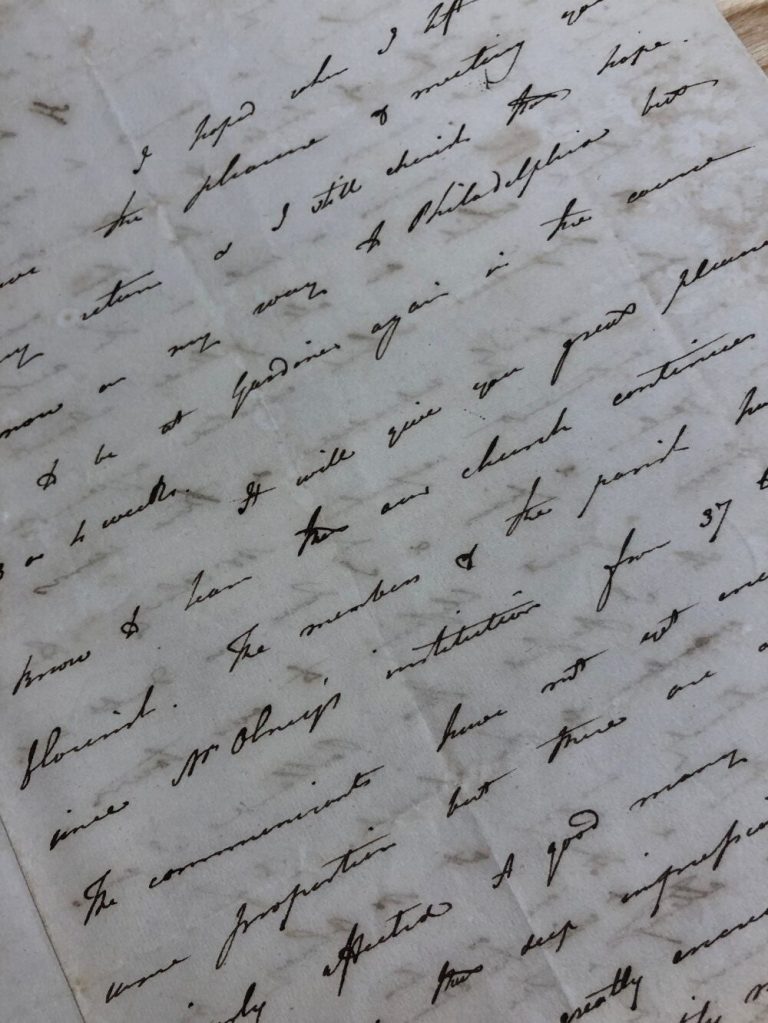 I hoped when I left
the pleasure of meeting you
return & I still cherish that hope.
now on my way to Philadelphia but
to be at Gardiner again in the course
3 or 4 weeks. It will give you great pleasure
know to learn that our church continues
flourish. The members of the parish have
since Mr Olney's institution from 37 to
The communicants have not yet
same proportion but there are
affected & good many
this deep impression
greatly